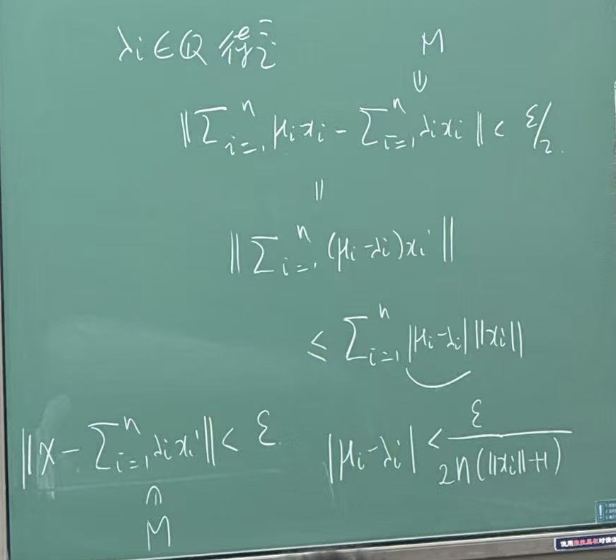 λi ∈ Q 使得
M
⇓
‖∑_{i=1}^{n} μi xi − ∑_{i=1}^{n} λi xi‖ < ε/2.
=
‖∑_{i=1}^{n} (μi−λi) xi‖
≤ ∑_{i=1}^{n} |μi−λi| ‖xi‖
‖x − ∑_{i=1}^{n} λi xi‖ < ε
∩
M
|μi−λi| < ε / 2n(‖xi‖+1)